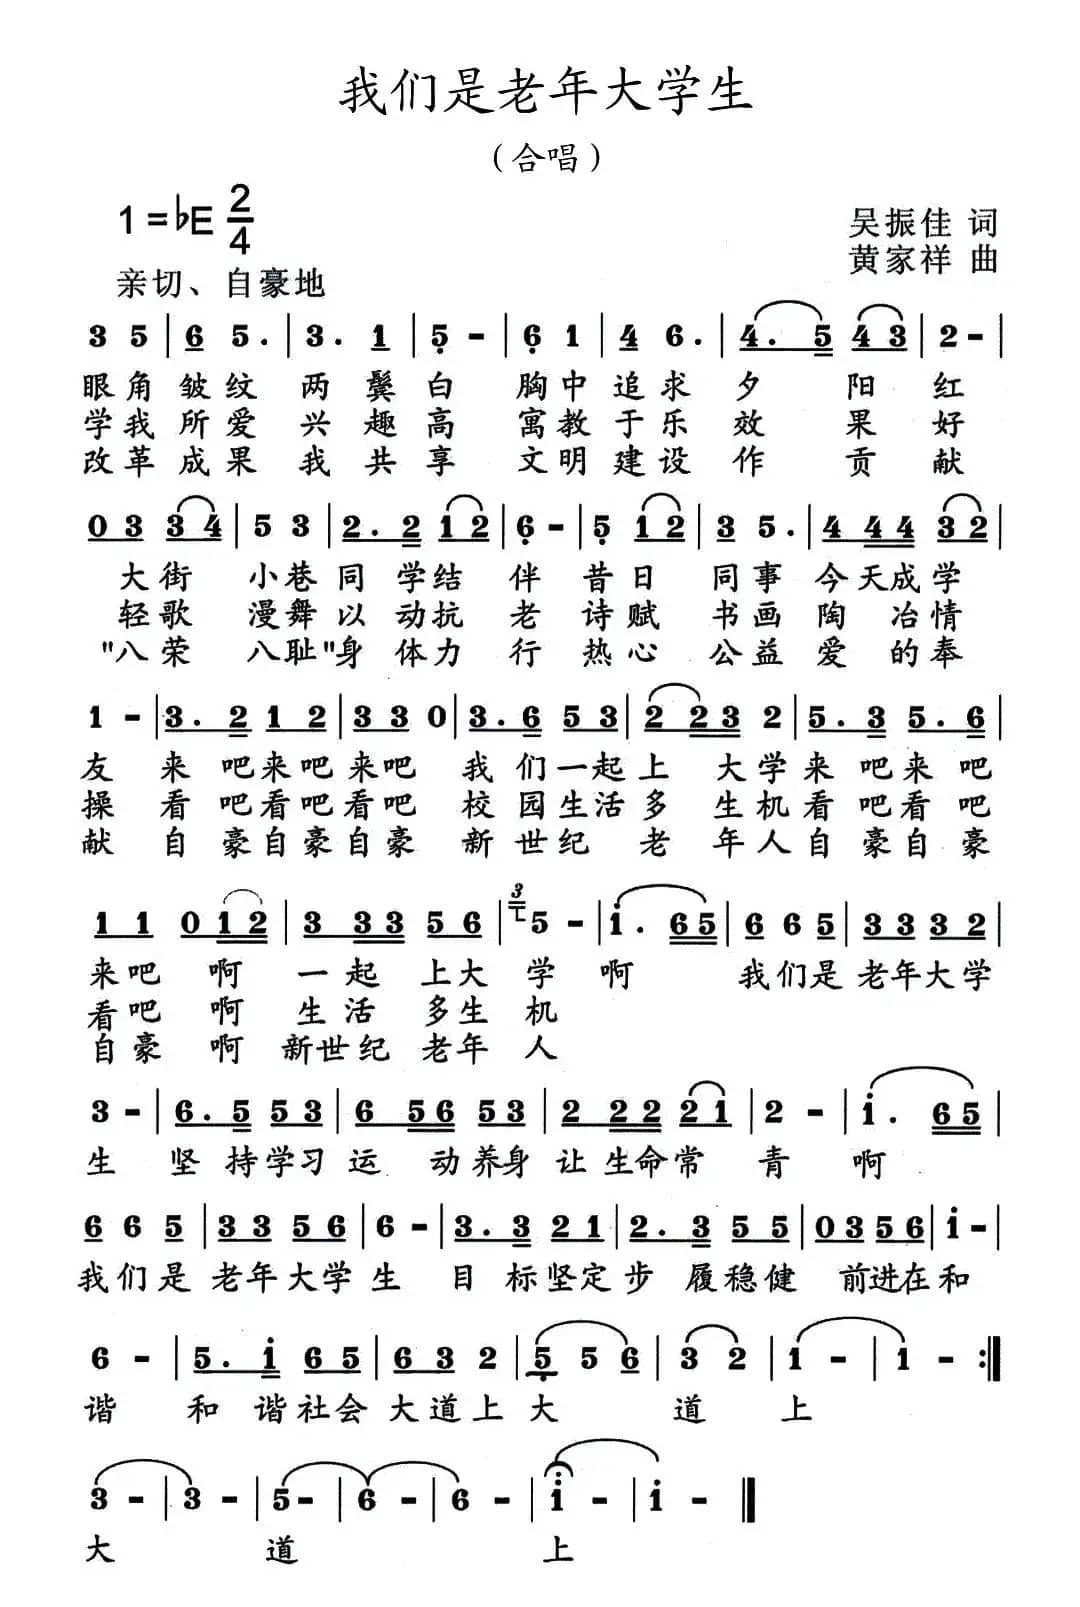 我们是老年大学生
（合唱）
1=♭E 2/4
吴振佳 词
黄家祥 曲
亲切、自豪地
3 5 | 6 5. | 3. 1 | 5 - | 6 1 | 4 6. | 4. 5 4 3 | 2 - |
眼角皱纹两鬓白 胸中追求夕阳红
学我所爱兴趣高 寓教于乐效果好
改革成果我共享 文明建设作贡献
0 3 3 4 | 5 3 | 2. 2 1 2 | 6 - | 5 1 2 | 3 5. | 4 4 4 3 2 |
大街小巷同学结伴昔日同事今天成学
轻歌漫舞以动抗老诗赋书画陶冶情
"八荣八耻"身体力行热心公益爱的奉
1 - | 3. 2 1 2 | 3 3 0 | 3. 6 5 3 | 2 2 3 2 | 5. 3 5. 6 |
友来吧来吧来吧我们一起上大学来吧来吧
操看吧看吧看吧校园生活多生机看吧看吧
献自豪自豪自豪新世纪老年人自豪自豪
1 1 0 1 2 | 3 3 3 5 6 | 3 5 - | i. 6 5 | 6 6 5 | 3 3 3 2 |
来吧啊一起上大学啊我们是老年大学
看吧啊生活多生机
自豪啊新世纪老年人
3 - | 6. 5 5 3 | 6 5 6 5 3 | 2 2 2 2 1 | 2 - | i. 6 5 |
生坚持学习运动养身让生命常青啊
6 6 5 | 3 3 5 6 | 6 - | 3. 3 2 1 | 2. 3 5 5 | 0 3 5 6 | i - |
我们是老年大学生目标坚定步履稳健前进在和
6 - | 5. i 6 5 | 6 3 2 | 5 5 6 | 3 2 | 1 - | 1 - :||
谐和谐社会大道上大道上
3 - | 3 - | 5 - | 6 - | 6 - | i - | i - ||
大道上